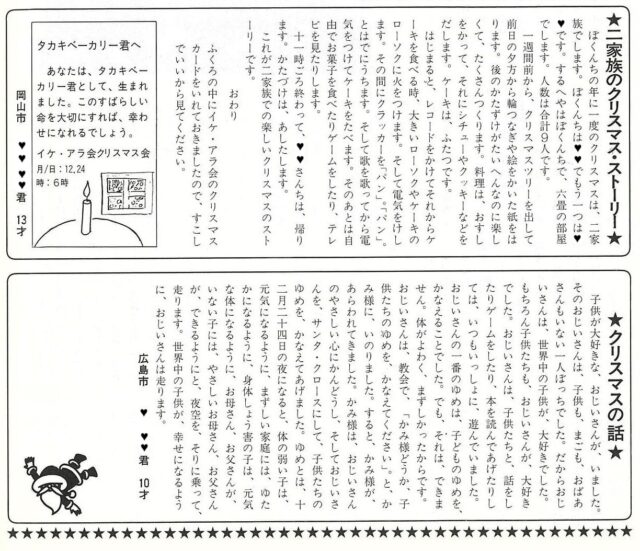 ★二家族のクリスマス・ストーリー★
ぼくんちの年に一度のクリスマスは、二家
族でします。ぼくんちは♥♥でもう一つは♥
♥です。するへやはぼくんちで、六畳の部屋
でします。人数は合計9人です。
一週間前から、クリスマスツリーを出して
前日の夕方から輪つなぎや絵をかいた紙をは
ります。後のかたずけがたいへんなのに楽し
くて、たくさんつくります。料理は、おすし
をかって、それにシチューやクッキーなどを
だします。ケーキは、ふたつです。
はじまると、レコードをかけてそれからケ
ーキを食べる時、大きいローソクやケーキの
ローソクに火をつけます。そして電気をけし
ます。その間にクラッカーを「パン」。「パン」。
とはでにうちます。そして歌を歌ってから電
気をつけてケーキをたべます。そのあとは自
由でお菓子を食べたりゲームをしたり、テレ
ビを見たりします。
十一時ごろ終わって、♥♥さんちは、帰り
ます。かたづけは、あしたします。
これが二家族での楽しいクリスマスのスト
ーリーです。
おわり
ふくろの中にイケ・アラ会のクリスマス
カードをいれておきましたので、すこし
でいいから見てください。
タカキベーカリー君へ
あなたは、タカキベー
カリー君として、生まれ
ました。このすばらしい
命を大切にすれば、幸わ
せになれるでしょう。
イケ・アラ会クリスマス会
月/日：12,24
時：6時
岡山市 ♥♥♥♥君 13才
★クリスマスの話★
子供が大好きな、おじいさんが、いました。
そのおじいさんは、子供も、まごも、おばあ
さんもいない一人ぼっちでした。だからおじ
いさんは、世界中の子供が、大好きでした。
もちろん子供たちも、おじいさんが、大好き
でした。おじいさんは、子供たちと、話をし
たりゲームをしたり、本を読んであげたりし
ては、いつもいっしょに、遊んでいました。
おじいさんの一番のゆめは、子どものゆめを、
かなえることでした。でも、それは、できま
せん。体がよわく、まずしかったからです。
おじいさんは、教会で、「かみ様どうか、子
供たちのゆめを、かなえてください。」と、か
み様に、いのりました。すると、かみ様が、
あらわれてきました。かみ様は、おじいさん
のやさしい心にかんどうし、そしておじいさ
んを、サンタ・クロースにして、子供たちの
ゆめを、かなえてあげました。ゆめとは、十
二月二十四日の夜になると、体の弱い子は、
元気になるように、まずしい家庭には、ゆた
かになるように、身体しょう害の子は、元気
な体になるように、お母さん、お父さんが、
いない子には、やさしいお母さん、お父さん
が、できるようにと、夜空を、そりに乗って、
走ります。世界中の子供が、幸せになるよう
に、おじいさんは走ります。
広島市 ♥ ♥♥君 10才